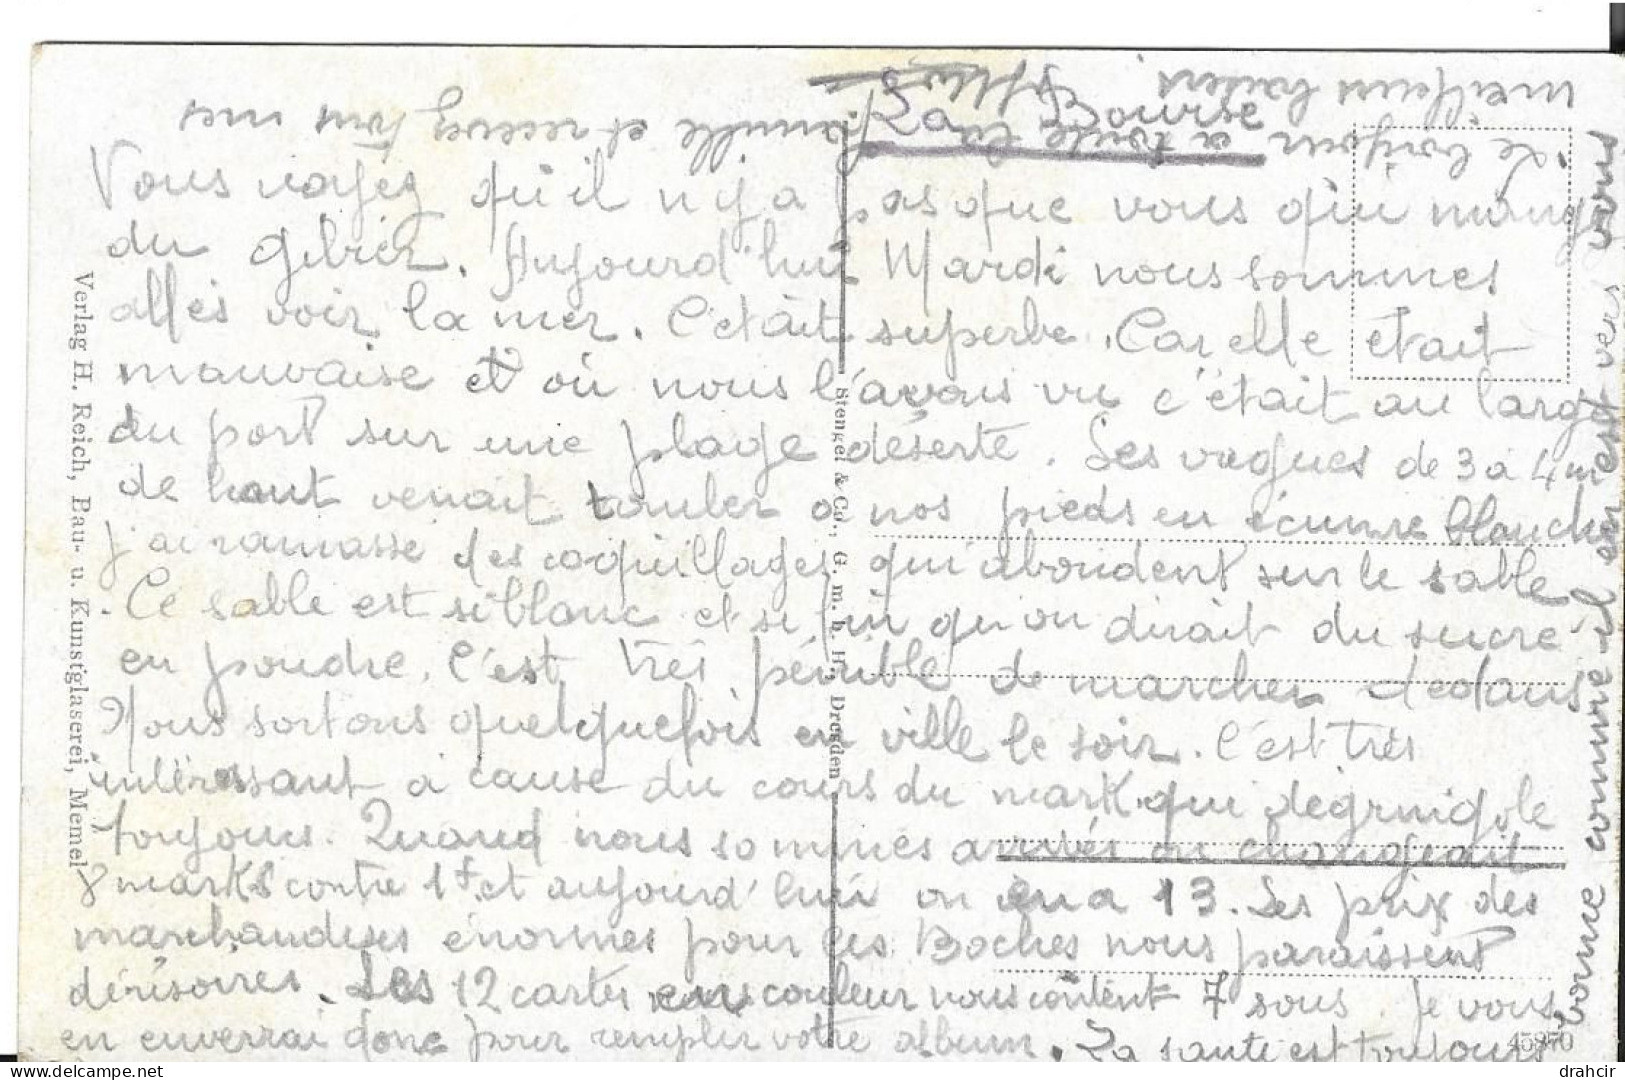 Vous voyez qu'il n'y a pas que vous qui mangez
du gibier. Aujourd'hui Mardi nous sommes
allés voir la mer. C'était superbe. Car elle était
mauvaise et où nous l'avons vu c'était au large
du port sur une plage déserte. Les vagues de 3 à 4 m
de haut venait rouler à nos pieds en écume blanche
j'ai ramassé des coquillages qui abondent sur le sable
. Ce sable est si blanc et si fin qu'on dirait du sucre
en poudre. C'est très pénible de marcher dedans
Nous sortons quelquefois en ville le soir. C'est très
intéressant à cause du cours du mark qui dégringole
toujours. Quand nous sommes arrivés on changeait
8 marks contre 1f et aujourd'hui on en a 13. Les prix des
marchandises énormes pour les Boches nous paraissent
dérisoires. Les 12 cartes en couleur nous coûtent 7 sous. Je vous
en enverrai donc pour remplir votre album. La santé est toujours
bonne comme il en est vers vous
Le bonjour à toute la famille et recevez tous mes
meilleurs baisers.
La Bourse
Verlag H. Reich, Bau- u. Kunstglaserei, Memel
Stengel & Co., G. m. b. H., Dresden
45870
drahcir